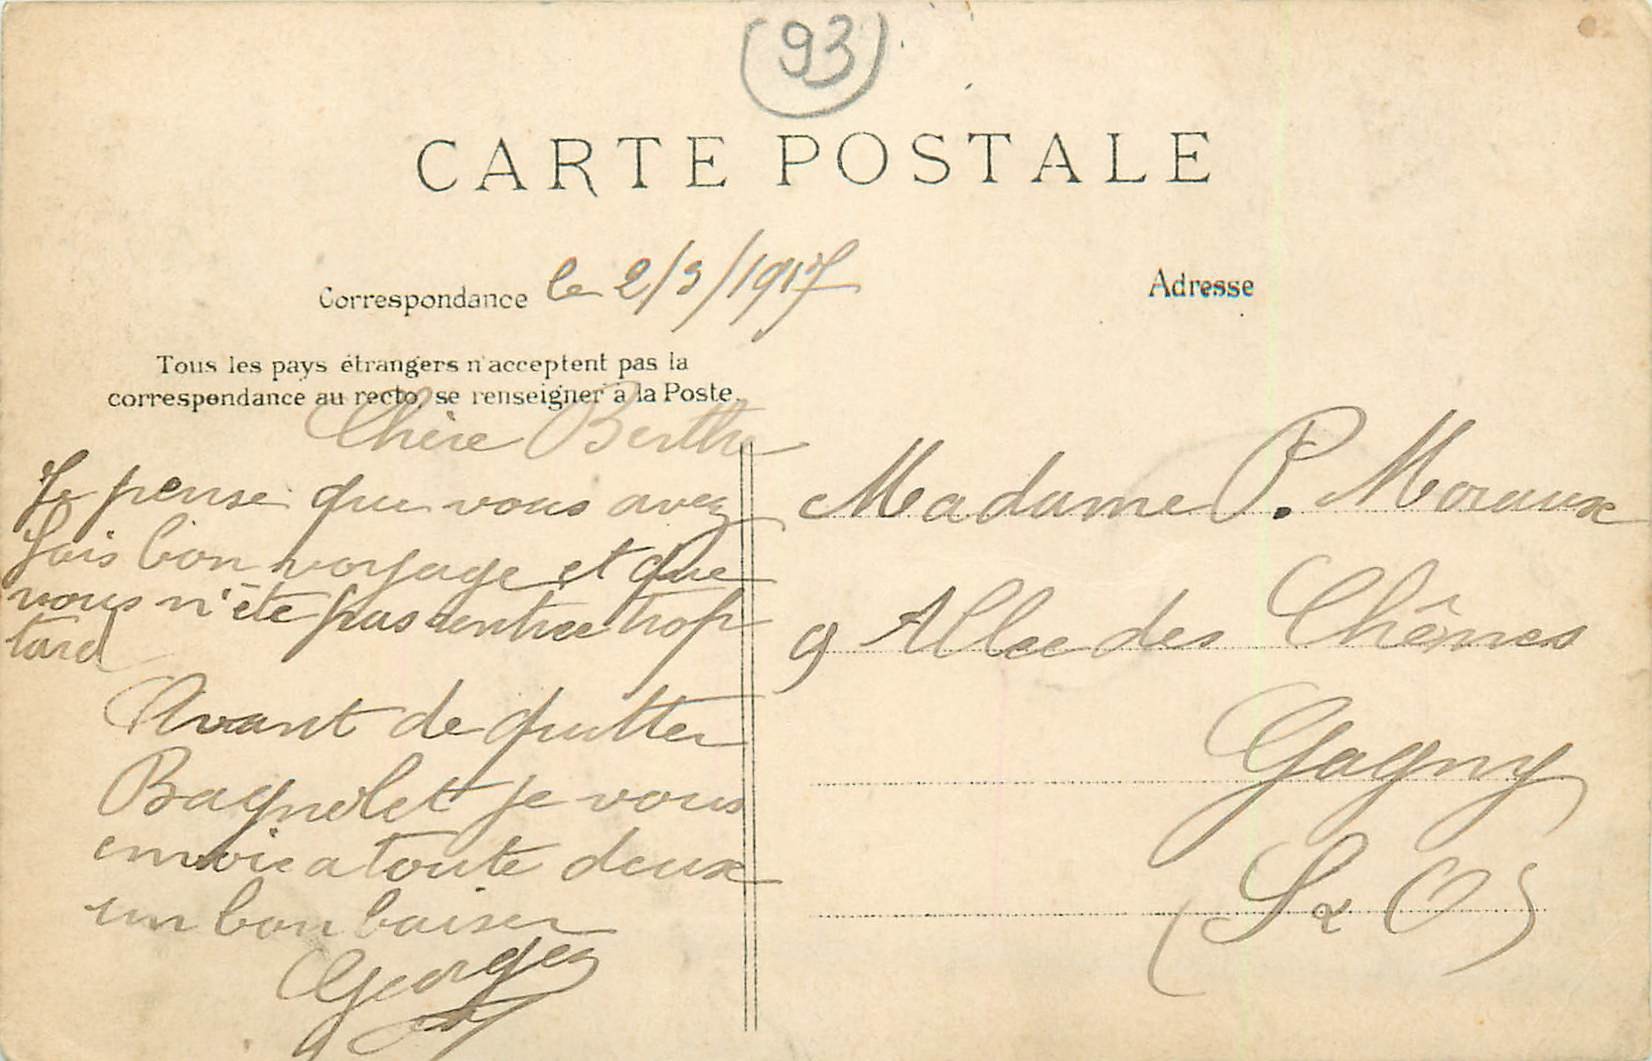 (93)
CARTE POSTALE
Correspondance le 2/3/1917
Adresse
Tous les pays étrangers n'acceptent pas la
correspondance au recto, se renseigner à la Poste.
Chère Berthe
Je pense que vous avez
fais bon voyage et que
vous n'ête pas rentrée trop
tard
Avant de quitter
Bagnolet je vous
envoie a toute deux
un bon baiser
Georges
Madame P. Moraux
9 Allee des Chênes
Gagny
(S & O)